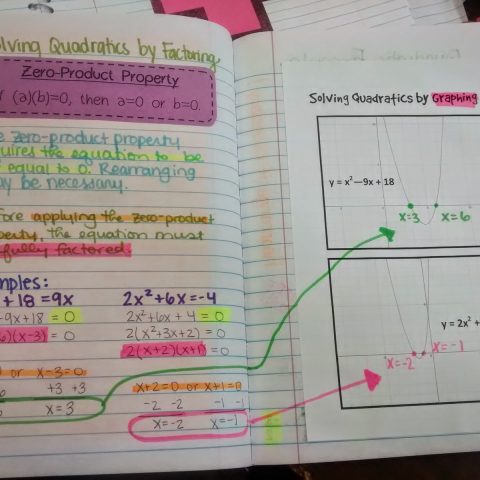 olving Quadratics by Factoring
Zero-Product Property
f (a)(b)=0, then a=0 or b=0.
e zero-product property
quires the equation to be
equal to 0. Rearranging
ay be necessary.
fore applying the zero-product
perty, the equation must
fully factored.
mples:
+ 18 = 9x
-9x+18 = 0
6)(x-3) = 0
or x-3=0
+3 +3
x=3
2x²+6x=-4
2x²+6x+4=0
2(x²+3x+2)=0
2(x+2)(x+1)=0
x+2=0 or x+1=0
-2 -2 -1 -1
x=-2 x=-1
Solving Quadratics by Graphing
y = x²—9x + 18
x=3 x=6
y = 2x² +
x=-2 x=-1